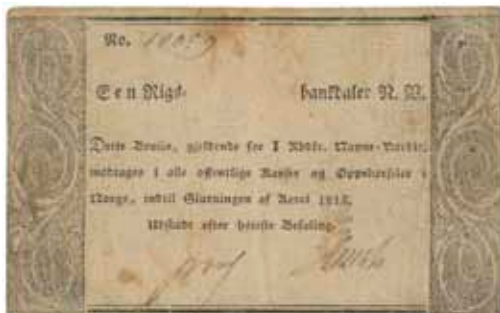 No. 10059
Een Rigs- banktaler N. V.
Dette Beviis, gjeldende for 1 Rbdlr. Navne-Værdie,
modtages i alle offentlige Kasser og Oppebørseler i
Norge, indtil Slutningen af Aaret 1815.
Udstædt efter høieste Befaling.